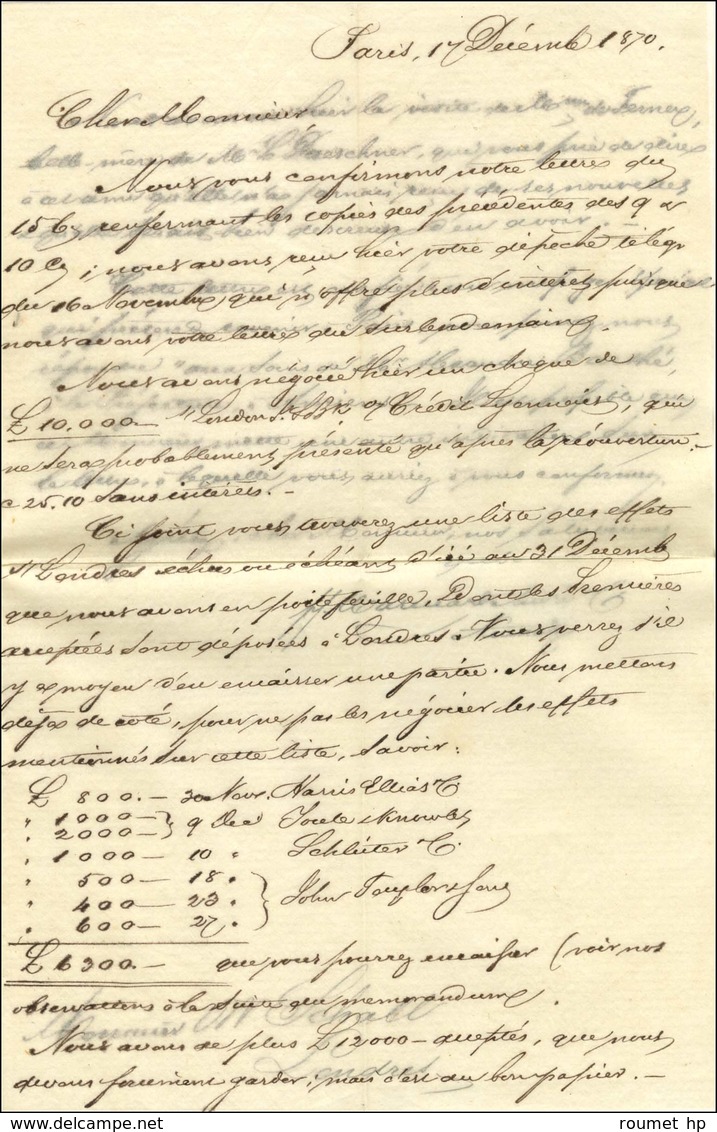 Paris, 17 Décemb 1870.
Cher Monsieur
Nous vous confirmons notre lettre du
15 Ct, renfermant les copies des précédentes des 9 &
10 Ct; nous avons reçu hier votre dépêche télégr
du 16 Novembre qui n'offre plus d'intérêt puisque
nous avons votre lettre du surlendemain.
Nous avons négocié hier un chèque de
£ 10,000.— s/ London Jt S. Bk o/ Crédit Lyonnais, qui
ne sera probablement présenté qu'après la réouverture.—
c 25.10 sans intérêts.—
Ci joint vous trouverez une liste des effets
s/ Londres échus ou échéant d'ici au 31 Décemb
que nous avons en portefeuille, & dont les premières
acceptées sont déposées à Londres. Vous verrez s'il
y a moyen d'en encaisser une partie. Nous mettons
déjà de côté, pour ne pas les négocier les effets
mentionnés sur cette liste, savoir:
£ 800.— 30 Nov. Harris Ellias & C
" 1000—
" 2000— } 9 Dec Knowles
" 1000— 10 " Schlüter & C.
" 500— 18 "
" 400— 23 " } John Taylor & Sons
" 600— 27 "
£ 6300.— que vous pourrez encaisser (voir nos
observations à la suite du memorandum.
Nous avons de plus £ 12000— acceptés, que nous
devons forcément garder, mais c'est du bon papier.—
Monsieur
Londres
roumet hp